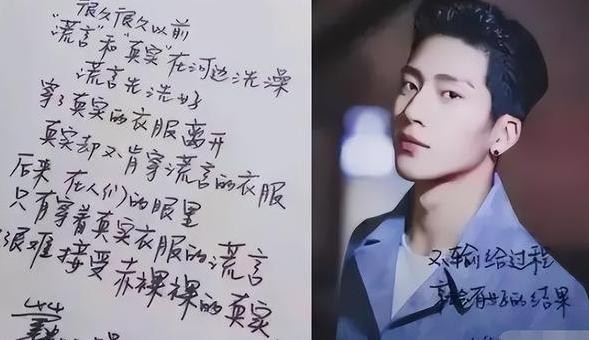 很久很久以前
“谎言”和“真实”在河边洗澡
谎言先洗好
穿了真实的衣服离开
真实却不肯穿谎言的衣服
后来 在人们的眼里
只有穿着真实衣服的谎言
很难接受赤裸裸的真实
不输给过程
就会有好的结果